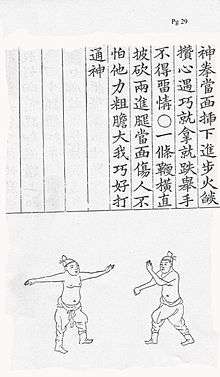 Pg 29
神拳當面揷下進步火燄
攢心遇巧就拿就跌舉手
不得畱情〇一條鞭橫直
披砍兩進腿當面傷人不
怕他力粗膽大我巧好打
通神